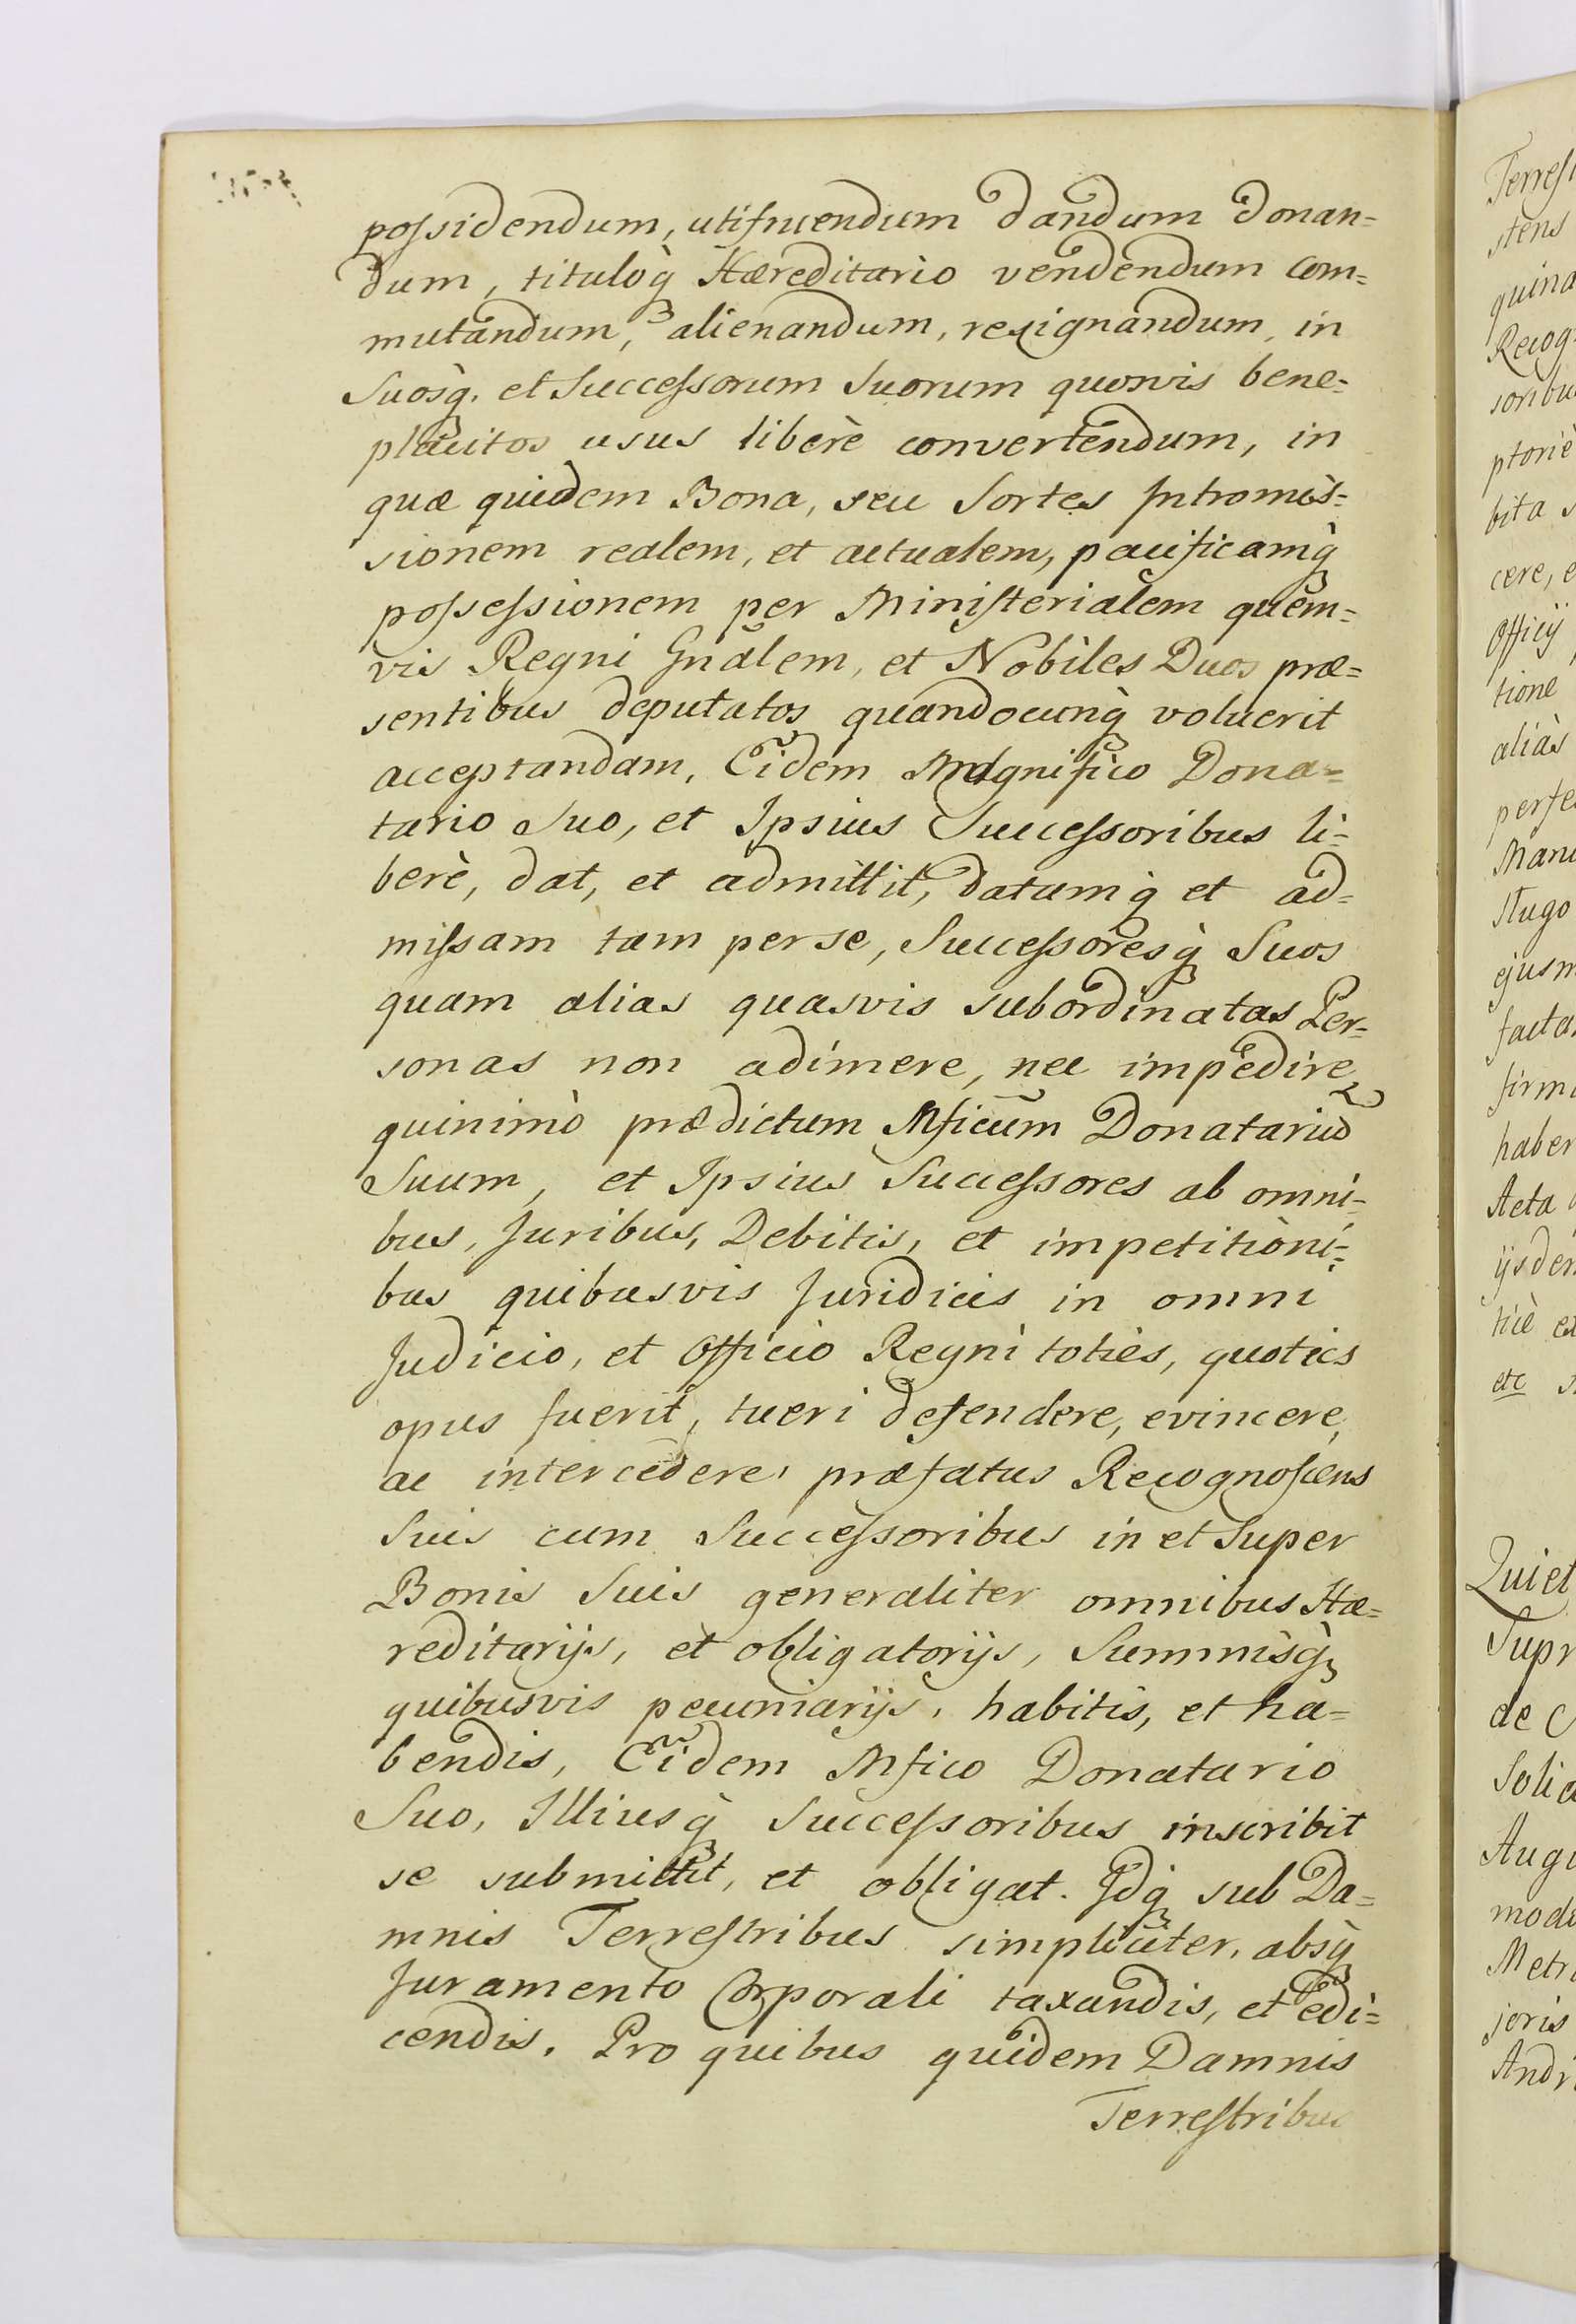 possidendum, utifruendum dandum donan=
dum, tituloq̀ Hæreditario vendendum com=
mutandum, alienandum, resignandum, in
Suosq̀, et Successorum Suorum quorvis bene=
placitos usus liberè convertendum, in
quæ quidem Bona, seu Sortes Intromis=
sionem realem, et actualem, pacificamq̀
possessionem per Ministerialem quem=
vis Regni Gnãlem, et Nobiles Duos præ=
sentibus deputatos quandocunq̀ voluerit
acceptandam, Eidem Magnifico Dona=
tario Suo, et Ipsius Successoribus li=
berè, dat, et admittit, datamq̀ et ad=
missam tam per se, Successoresq̀ Suos
quam alias quasvis subordinatas Per=
sonas non adimere, nec impedire
quinimò prædictum Mficum Donatariũ
Suum, et Ipsius Successores ab omni=
bus, Juribus, Debitis, et impetitioni=
bus quibusvis Juridicis in omni
Judicio, et Officio Regni toties, quoties
opus fuerit, tueri defendere, evincere,
ac intercedere, præfatus Recognoscens
Suis cum Successoribus in et Super
Bonis Suis generaliter omnibus Hæ=
reditarijs, et obligatorijs, Summisq̀
quibusvis pecuniarijs, habitis, et ha=
bendis, Eidem Mfico Donatario
Suo, Illiusq̀ Successoribus inscribit
se submittit, et obligat. Idq̀ sub Da=
mnis Terrestribus simpliciter, absq̀
Juramento Corporali taxandis, et edi=
cendis. Pro quibus quidem Damnis
Terrestribus
Terrest
stens
quina
Recog=
soribu
ptoriè
bita s
cere, e
Officij
tione
aliàs
perfe
Manu
Hugo
ejusm
facta
firma
haber
Acta
ijsdem
ticè et
etc
Quiet
Supr
de C
Solic
Augu
mode
Metri
joris
Andr